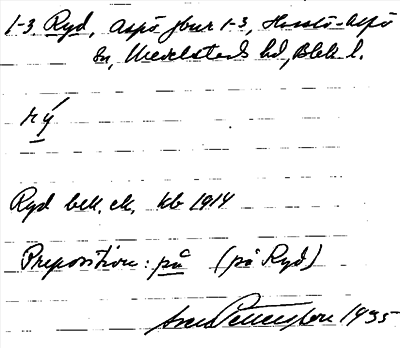 1-3 Ryd, Aspö jbur 1-3, Hasslö-Aspö
sn, Medelsteds hd, Blek. l.
rý
Ryd bek. ek. kb 1914
Preposition: på (på Ryd)
Pettersson 1935